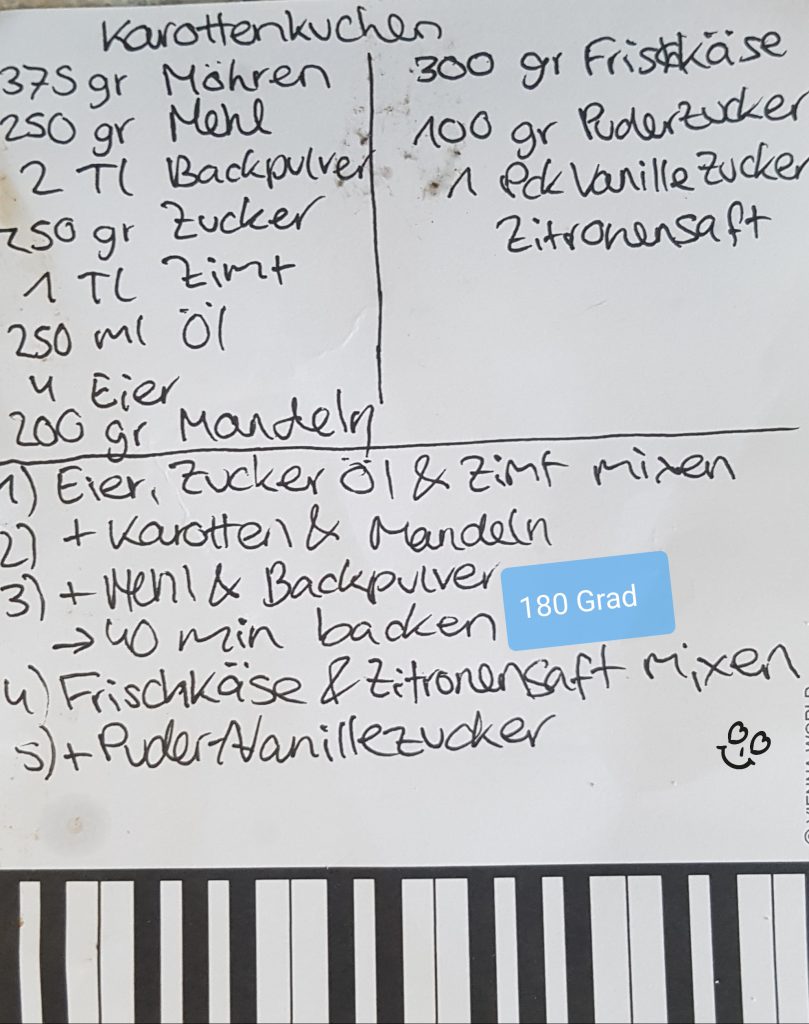 Karottenkuchen
375 gr Möhren
250 gr Mehl
2 TL Backpulver
250 gr Zucker
1 TL Zimt
250 ml Öl
4 Eier
200 gr Mandeln
300 gr Frischkäse
100 gr Puderzucker
1 Pck Vanille Zucker
Zitronensaft
1) Eier, Zucker Öl & Zimt mixen
2) + Karotten & Mandeln
3) + Mehl & Backpulver
→ 40 min backen
180 Grad
4) Frischkäse & Zitronensaft mixen
5) + Puder+Vanillezucker
© VIENNA WORLD